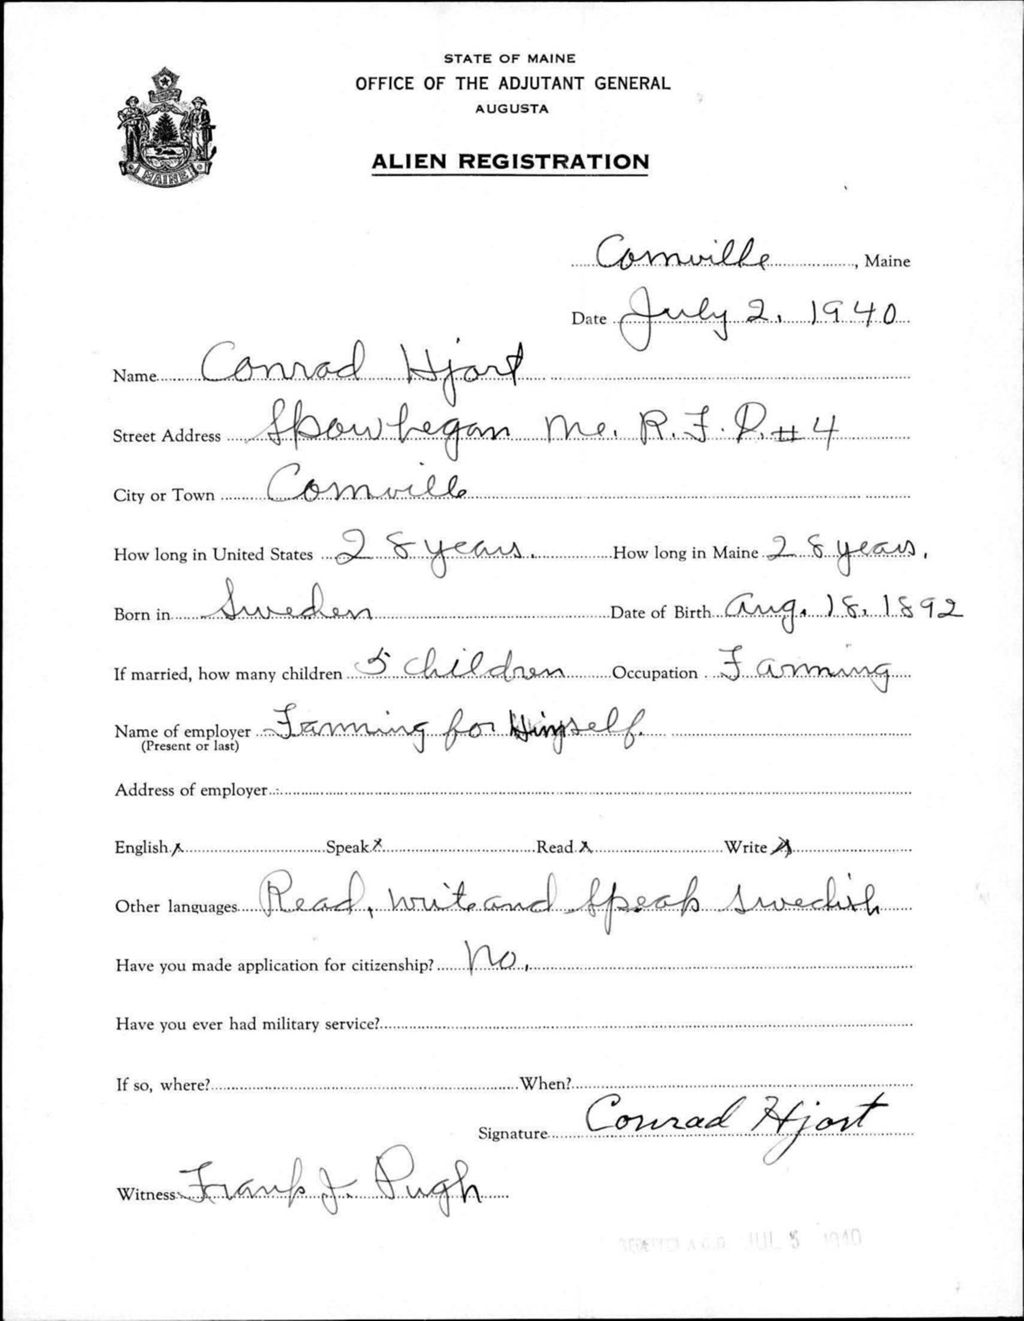 STATE OF MAINE
OFFICE OF THE ADJUTANT GENERAL
AUGUSTA
ALIEN REGISTRATION
MAINE
Cornville, Maine
Date July 2, 1940
Name Conrad Hjort
Street Address Skowhegan Me. R.F.D. #4
City or Town Cornville
How long in United States 28 years. How long in Maine 28 years.
Born in Sweden Date of Birth Aug. 18, 1892
If married, how many children 5 children Occupation Farming
Name of employer Farming for Himself.
(Present or last)
Address of employer
English x Speak x Read x Write x
Other languages Read, write and speak Swedish
Have you made application for citizenship? No.
Have you ever had military service?
If so, where? When?
Signature Conrad Hjort
Witness Frank J. Pugh
JUL 5 1940